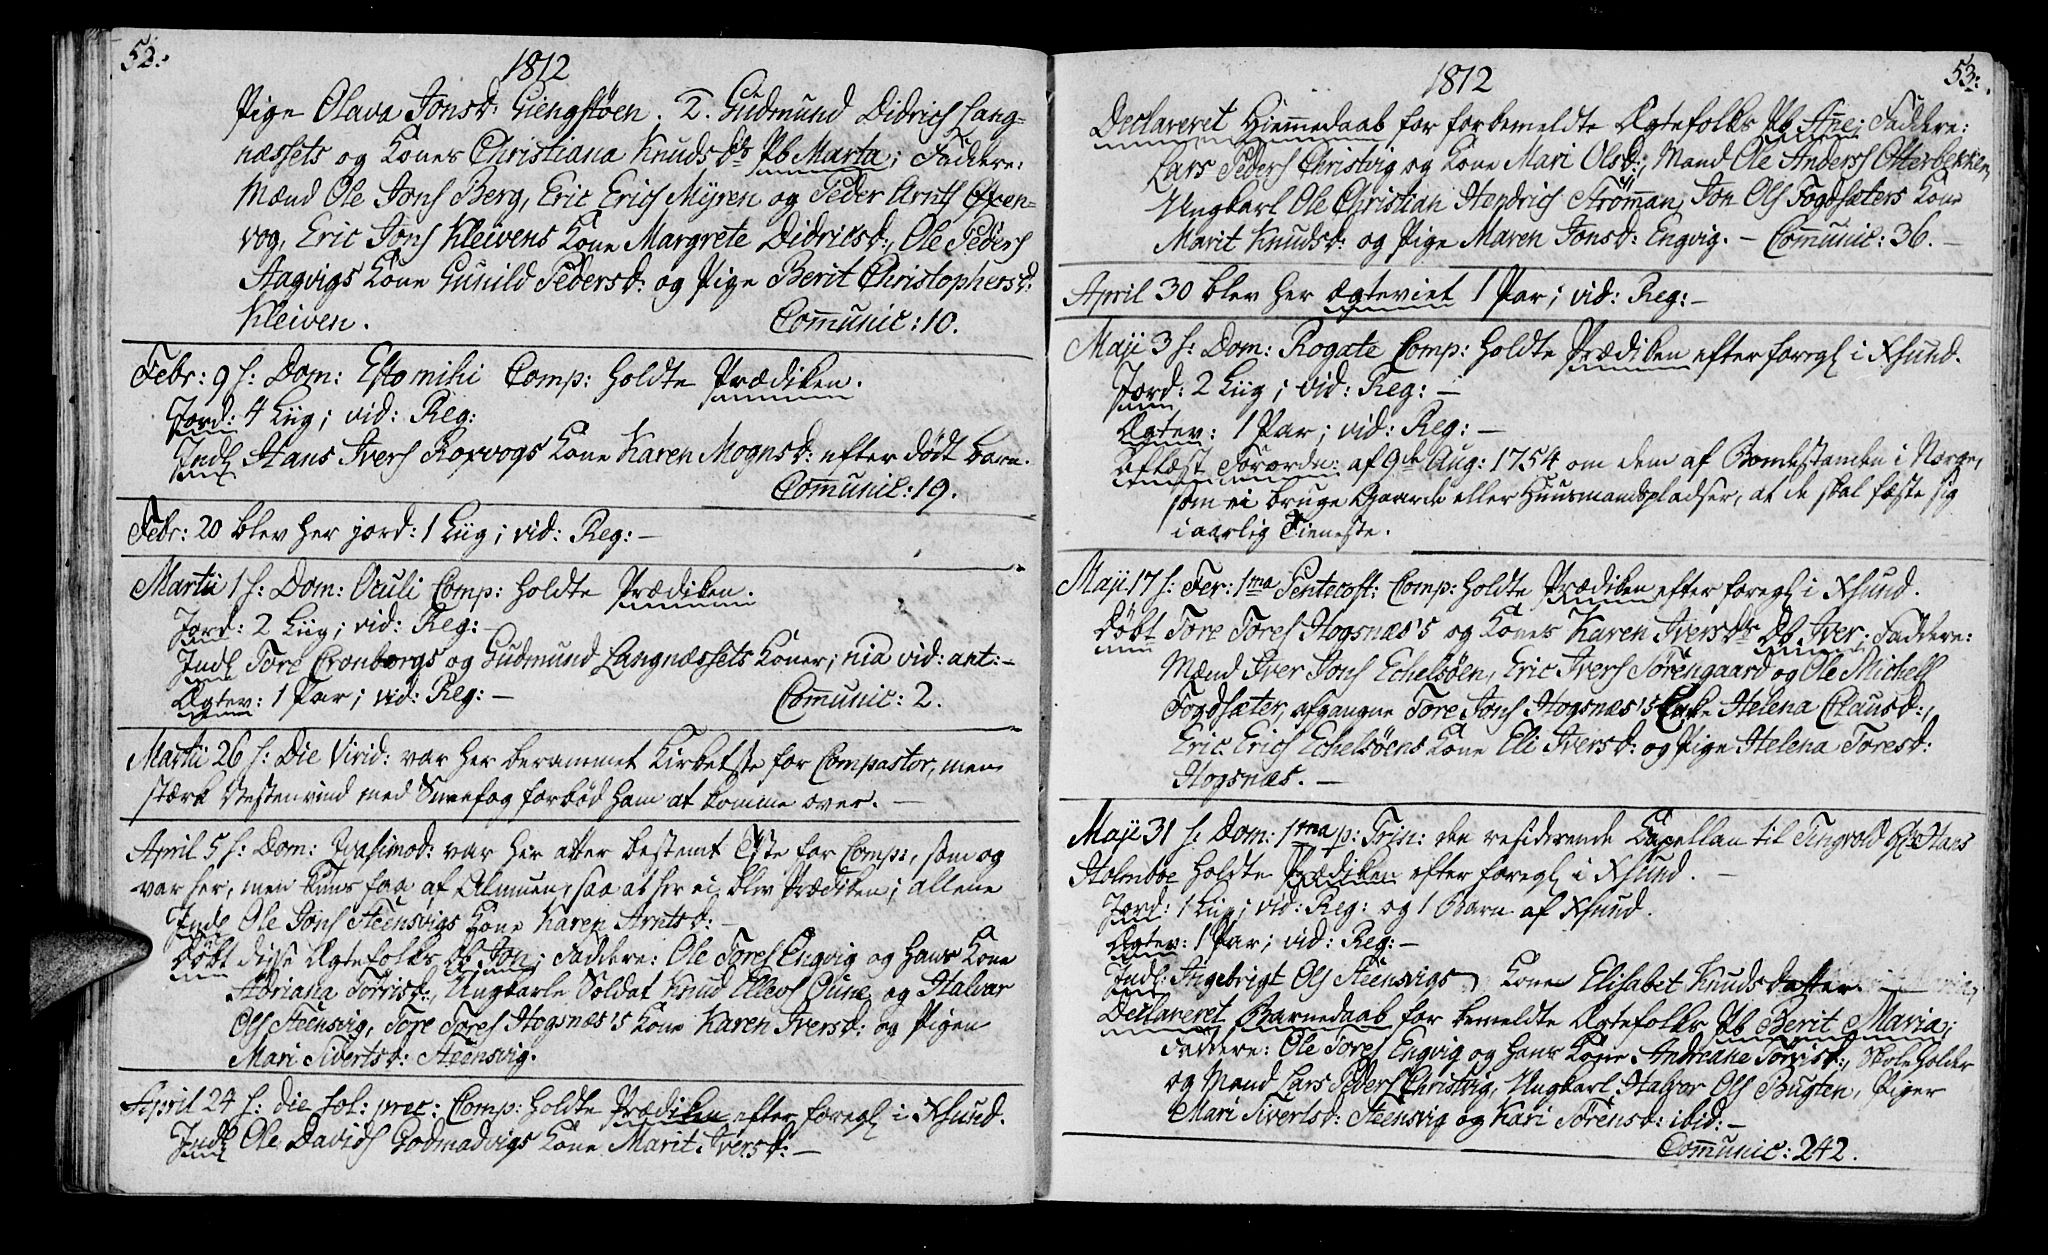 52.
1812
Pige Olava Jonsd: Giengstøen. 2. Gudmund Didrichs Lang-
næssets og Kones Christiana Knudsdtr Pb Marta; Faddere:
Mænd Ole Jons Berg, Eric Erics Myren og Peder Arnts Oxen-
vog, Eric Jons Kleivens Kone Margrete Didricsd:, Ole Peders
Aagvigs Kone Gunild Pedersd: og Pige Berit Christophersd:
Kleiven. Comunic: 10.
Febr: 9 s: Dom: Esto mihi Comp: holdte Prædiken.
Jord: 4 Liig; vid: Reg:
Indl Hans Ivers Roxvogs Kone Karen Mognsd: efter dødt Barn.
Comunic: 19.
Febr: 20 blev her jord: 1 Liig; vid: Reg: —
Martii 1 s: Dom: Oculi Comp: holdte Prædiken.
Jord: 2 Liig; vid: Reg: —
Indl Tore Cronborgs og Gudmund Langnæssets Koner; nia vid: ant: —
Ægtev: 1 Par; vid: Reg: — Comunic: 2.
Martii 26 s: Die Virid: var her berammet Kirketste for Compastor, men
stærk Vestenvind med Sneefog forbød ham at komme over. —
April 5 s: Dom: Qvasimod: var her atter bestemt Tste for Comp:, som og
var her, men kuns faa af Almuen, saa at her ei blev Prædiken; allene
Indl Ole Jons Steensvigs Kone Karen Arntsd: —
Døbt disse Ægtefolks Db Jon; Faddere: Ole Tores Engvig og hans Kone
Adriana Torrisd:, Ungkarle Soldat Knud Ellevs Qune og Halvar
Ols Steensvig, Tore Tores Hogsnæs's Kone Karen Iversd: og Pigen
Mari Sivertsd: Steensvig.
April 24 s: die sol: prec: Comp: holdte Prædiken efter foregl i Xsund.
Indl Ole Davids Godmadvigs Kone Marit Iversd: —
53.
1812
Declareret Hiemmedaab for forbemeldte Ægtefolks Pb Ane; Faddere:
Lars Peders Christvig og Kone Mari Olsd:, Mand Ole Anders Otterbekken,
Ungkarl Ole Christian Hendrich Strömman, Jon Ols Fogdsæters Kone
Marit Knudsd: og Pige Maren Jonsd: Engvig. — Comunic: 36. —
April 30 blev her Ægteviet 1 Par; vid: Reg: —
Maji 3 s: Dom: Rogate Comp: holdte Prædiken efter foregl i Xsund.
Jord: 2 Liig; vid: Reg: —
Ægtev: 1 Par; vid: Reg: —
Oplæst Forordn: af 9de Aug: 1754 om dem af Bondestanden i Norge,
som ei bruge Gaarde eller Huusmandspladser, at de skal fæste sig
i aarlig Tieneste.
Maji 17 s: Fer: 1ma Pentecost: Comp: holdte Prædiken efter foregl i Xsund.
Døbt Tore Tores Hogsnæs's og Kones Karen Iversdtr Db Iver; Faddere:
Mænd Iver Jons Echelsöen, Eric Ivers Sörengaard og Ole Michels
Fogdsæter, afgangne Tore Jons Hogsnæs's Enke Helena Clausd:,
Eric Erics Echelsöens Kone Eli Iversd: og Pige Helena Toresd:
Hogsnæs. —
Maji 31 s: Dom: 1ma p: Trin: den residerende Capellan til Tingvold Hans
Holmboe holdte Prædiken efter foregl i Xsund. —
Jord: 1 Liig; vid: Reg: og 1 Barn af Xsund.
Ægtev: 1 Par; vid: Reg: —
Indl: Ingebrigt Ols Steensvigs Kone Elisabet Knudsdatter
Declareret Barnedaab for bemeldte Ægtefolks Pb Berit Maria;
Faddere: Ole Tores Engvig og hans Kone Andreane Torrisd:, Skoleholder
og Mand Lars Peders Christvig, Ungkarl Halvor Ols Bugten, Piger
Mari Sivertsd: Steensvig og Kari Sörensd: ibid: —
Comunic: 242.